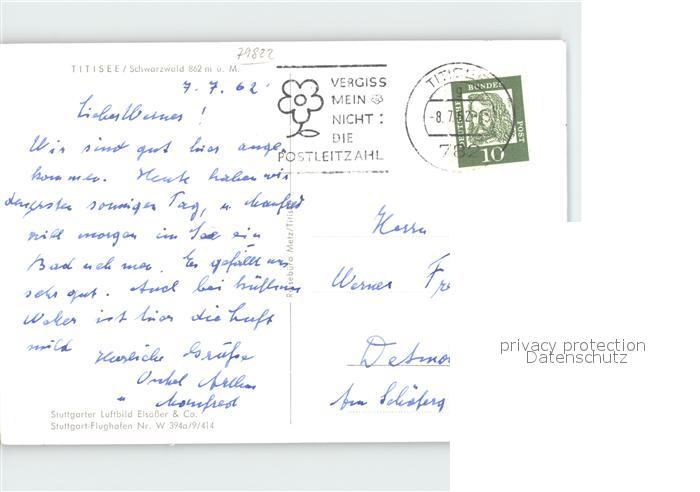 79822
TITISEE / Schwarzwald 862 m ü. M.
7. 7. 62.
Lieber Werner !
Wir sind gut hier ange-
kommen. Heute haben wir
den ersten sonnigen Tag, u. Manfred
will morgen im See ein
Bad nehmen. Es gefällt uns
sehr gut. Auch bei kühlem
Wetter ist hier die Luft
mild
Herzliche Grüße
Onkel Arthur
" Manfred
Stuttgarter Luftbild Elsäßer & Co.
Stuttgart-Flughafen Nr. W 394a/9/414
Reisebüro Metz/Titisee
VERGISS
MEIN
NICHT:
DIE
POSTLEITZAHL
TITISEE
g
-8.7.62
782
DEUTSCHE
BUNDES
POST
10
Herrn
Werner Fr
Detmo
Am Schäferg
privacy protection
Datenschutz